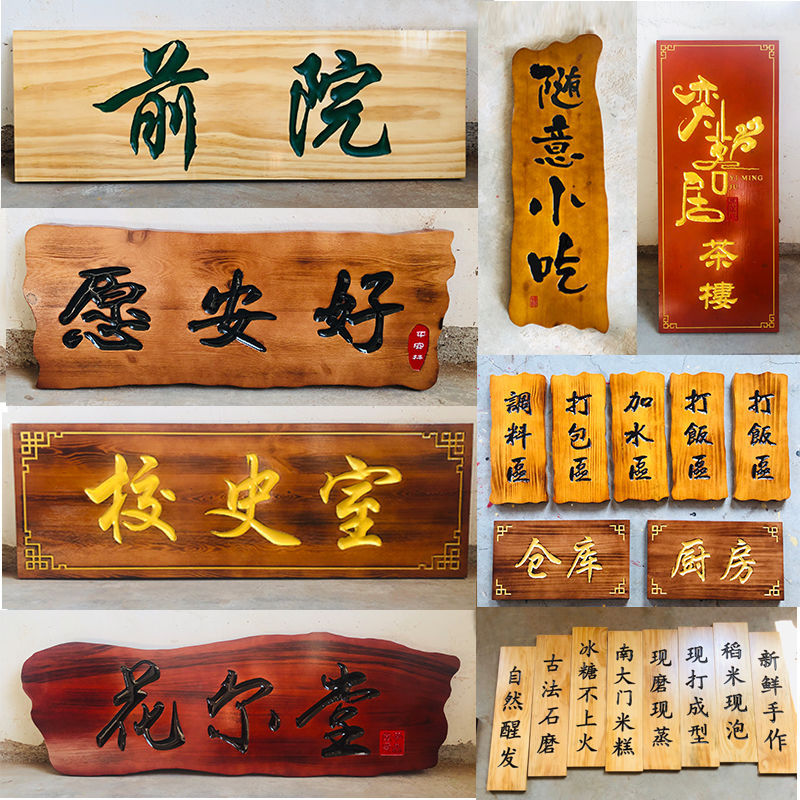 前院
愿安好
校史室
花尔堂
随意小吃
奕 居
YI MING
JU
茶樓
調料區
打包區
加水區
打飯區
打飯區
仓库
厨房
自然醒发
古法石磨
冰糖不上火
南大门米糕
现磨现蒸
现打成型
稻米现泡
新鲜手作